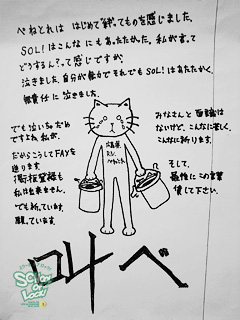 ぺねとれは はじめて"絆"てものを感じました。
SOL!はこんなにもあたたかった。私が言って
どうするん?って感じですが
泣きました。自分が無力でそれでもSOL!はあたたかく
無責任に泣きました。
でも泣いちゃだめ
ですよね、私が。
だからこうしてFAXを
送ります。
私は出来ません。
でも祈っています。
願っています。
みなさんと面識は
ないけど、こんなに苦しく
こんなに祈ります。
そして、
最後にこの言葉
貸して下さい。
広島県
R.N.
叫べ
SCHOOL OF LOCK!